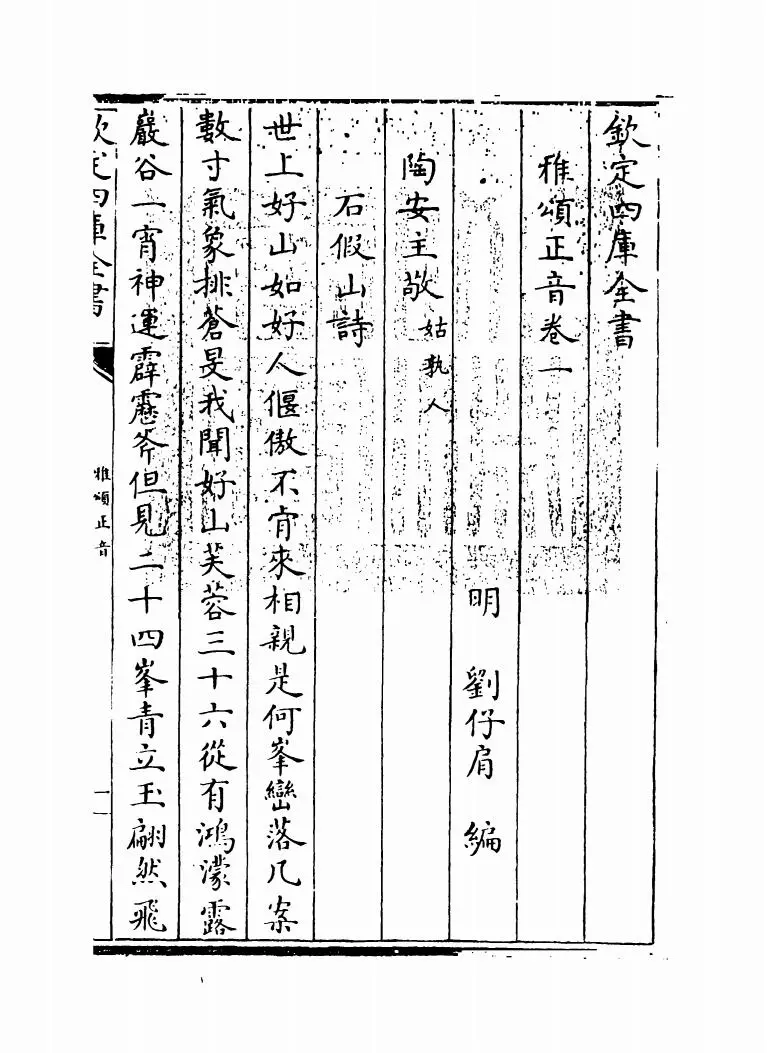 欽定四庫全書
雅頌正音卷一
明 劉仔肩 編
陶安主敬姑孰人
石假山詩
世上好山如好人偃傲不肯來相親是何峯巒落几案
數寸氣象排蒼旻我聞好山芙蓉三十六從有鴻濛露
巖谷一宵神運霹靂斧但見二十四峯青立玉翩然飛
欽定四庫全書
雅頌正音
一